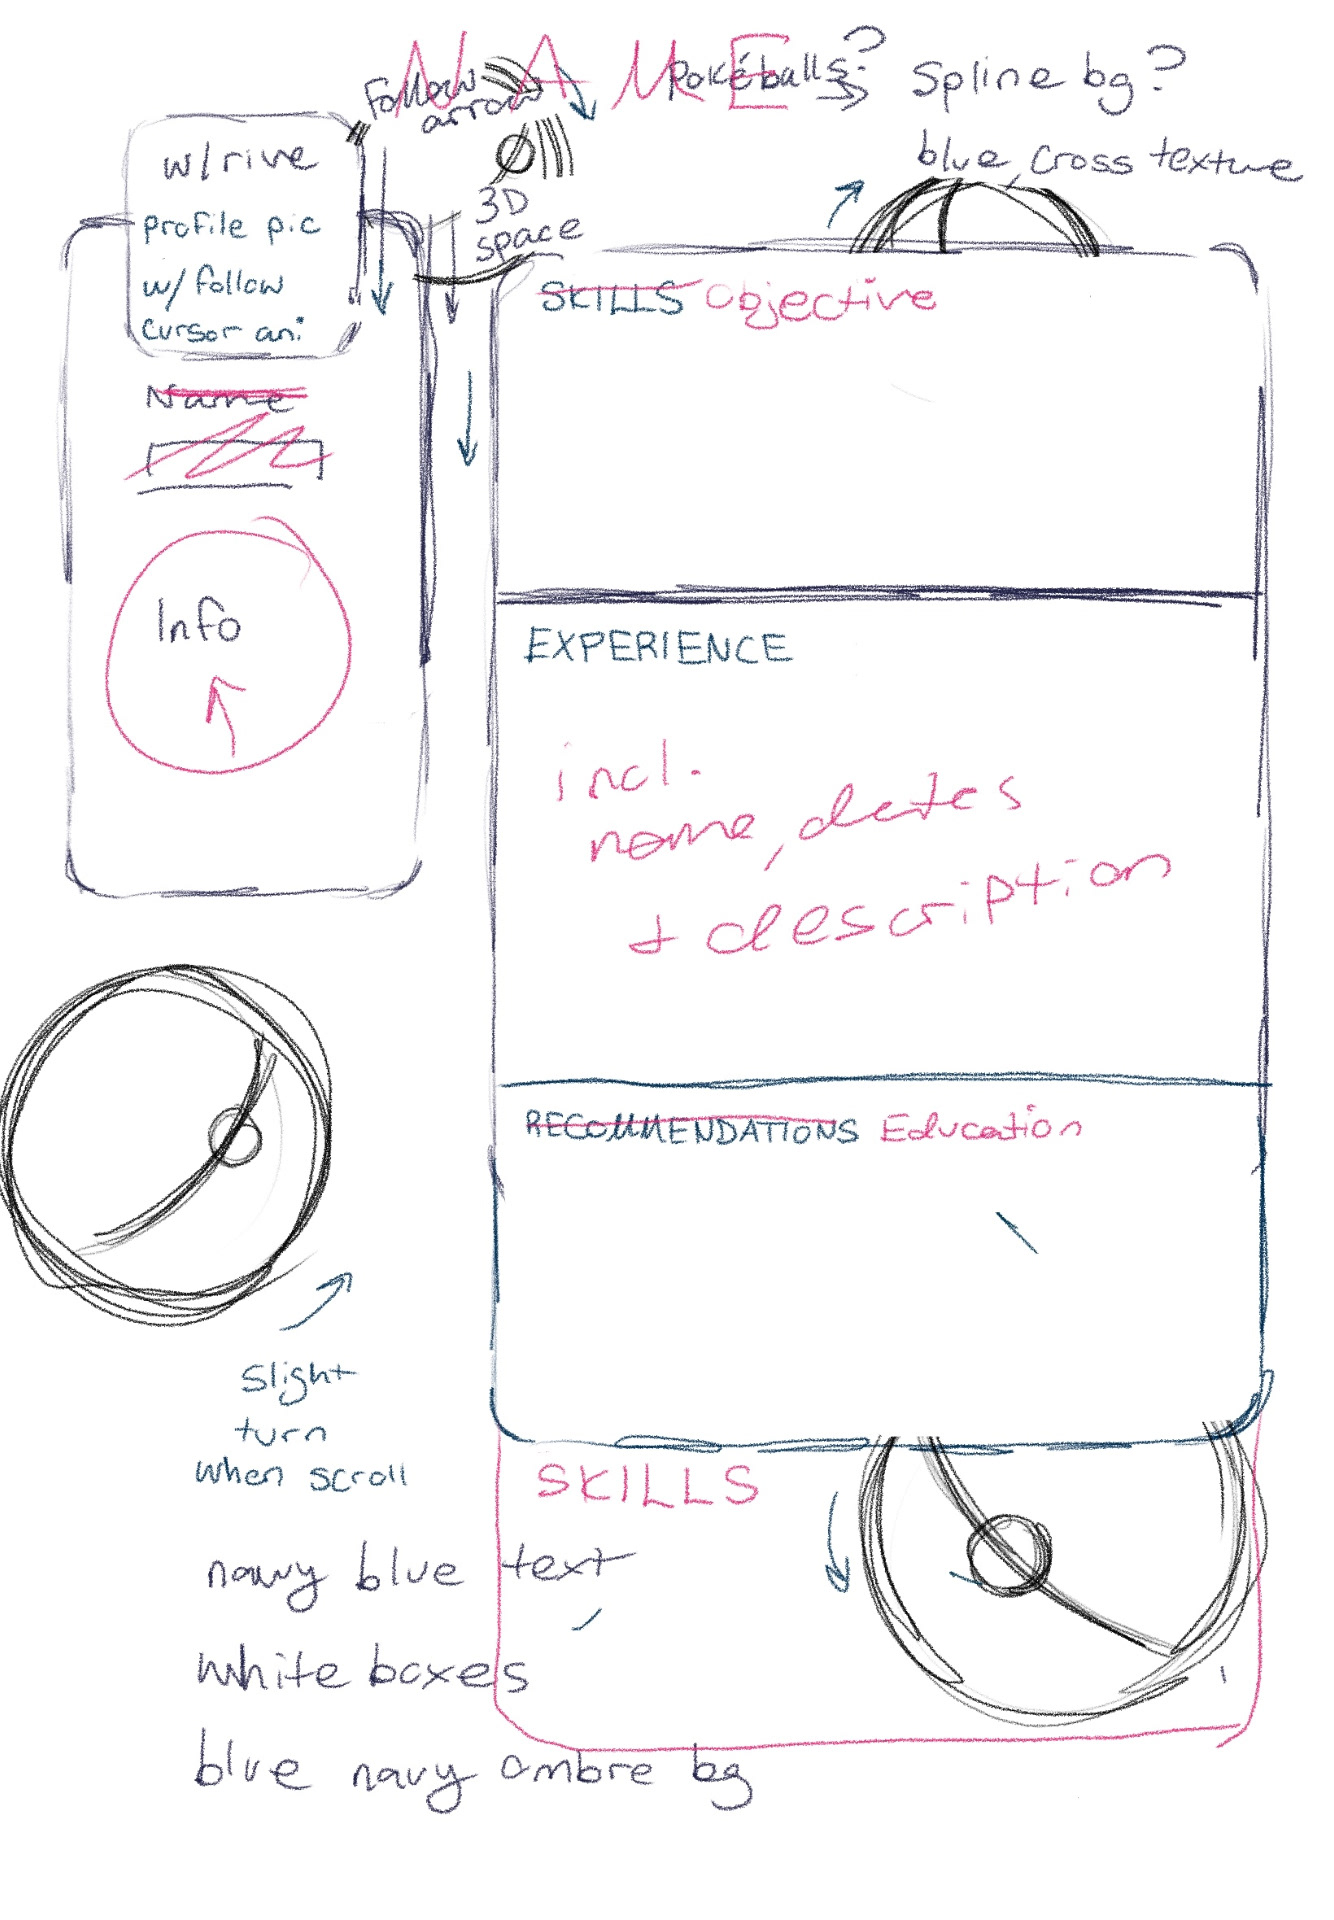 NAME
Follow
arrow
Pokéballs?
Spline bg?
blue, cross texture
3D
space
w/rive
profile pic
w/ follow
cursor ani
Name
Info
SKILLS Objective
EXPERIENCE
incl.
name, dates
+ description
RECOMMENDATIONS Education
Slight
turn
when scroll
SKILLS
navy blue text
white boxes
blue navy ombre bg